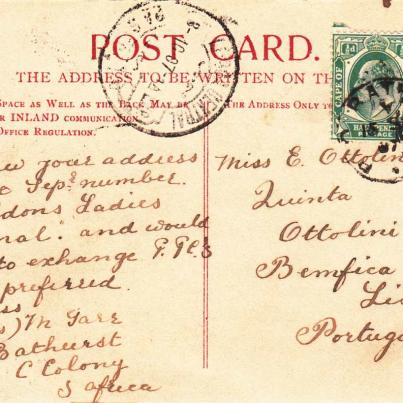 POST CARD.
THE ADDRESS TO BE WRITTEN ON TH
SPACE AS WELL AS THE BACK MAY BE
R INLAND COMMUNICATION
OFFICE REGULATION.
THE ADDRESS ONLY TO
CAPE OF
HALFPENNY
POSTAGE
w your address
e Sepr number
dons Ladies
nal" and would
to exchange P.Pcs
preferred.
ss
s) M
Bathurst
C Colony
S Africa
Miss E. Ottolin
Quinta
Ottolini
Bemfica
Li
Portuga